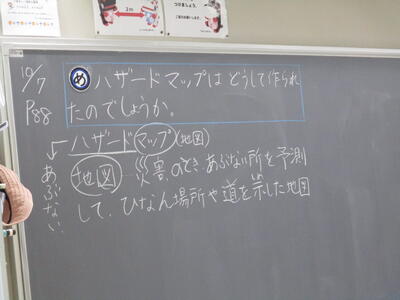 10/7
P88
め ハザードマップは どうして作られ
たのでしょうか。
ハザードマップ(地図)
あぶない
地図 災害のとき、あぶない所を予測
して、ひなん場所や道を示した地図
しめ
2m